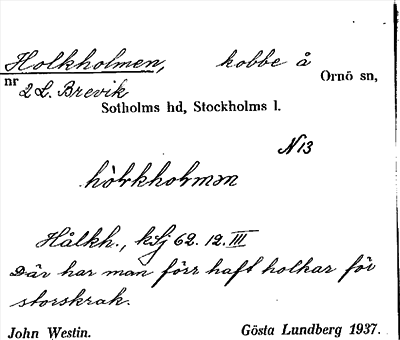 Holkholmen, kobbe å
nr 2 L. Brevik Ornö sn,
Sotholms hd, Stockholms l.
N 13
hòlkholmən
Hålkh., kSj 62. 12. III
Där har man förr haft holkar för
storskrak.
John Westin. Gösta Lundberg 1937.